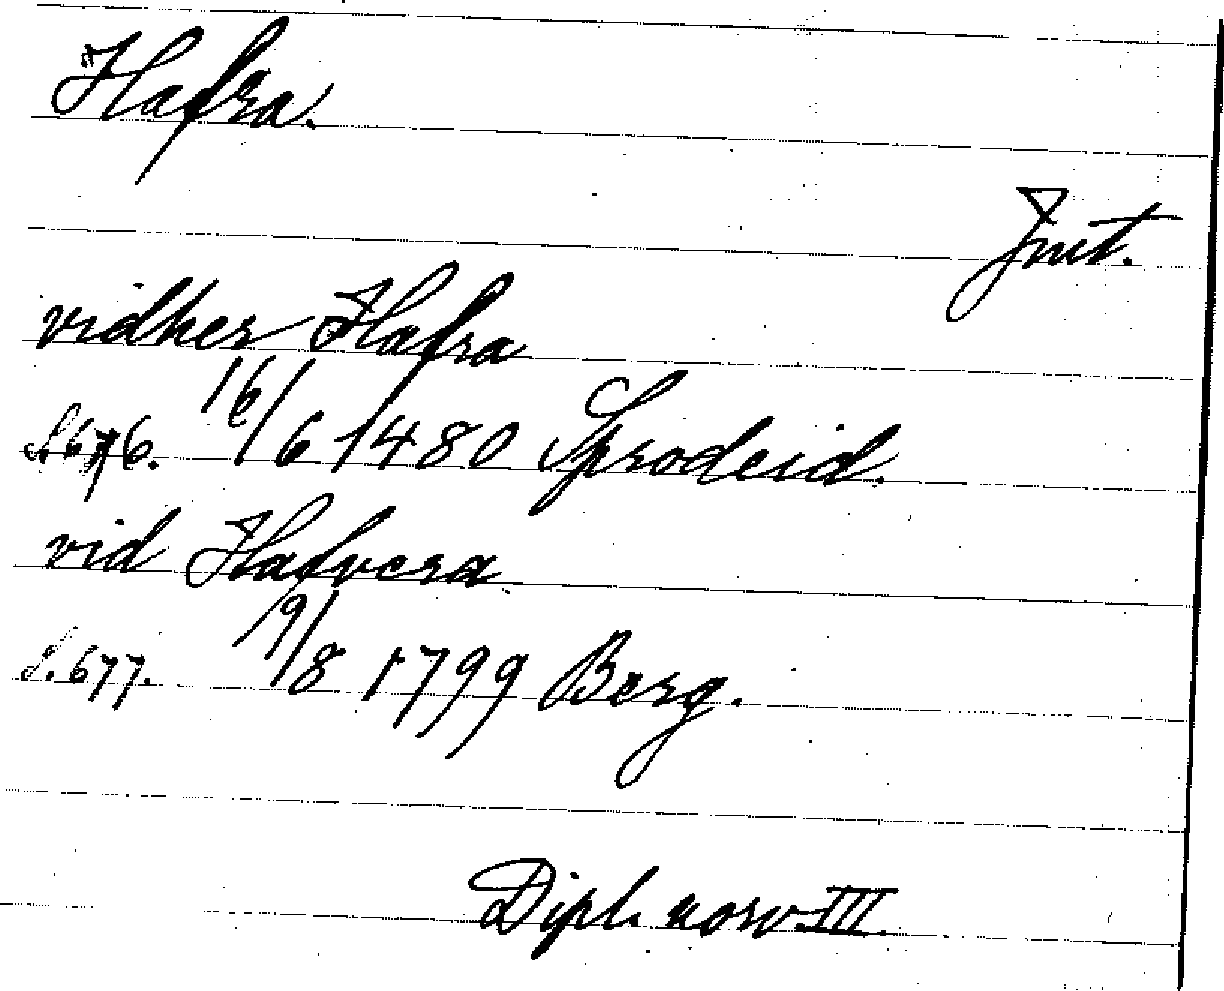 Hafra.
Jnt.
vidher Hafra
S. 676. 16/6 1480 Sprodeid.
vid Hafvera
S. 677. 19/8 1799 Berg.
Dipl. norv. III.